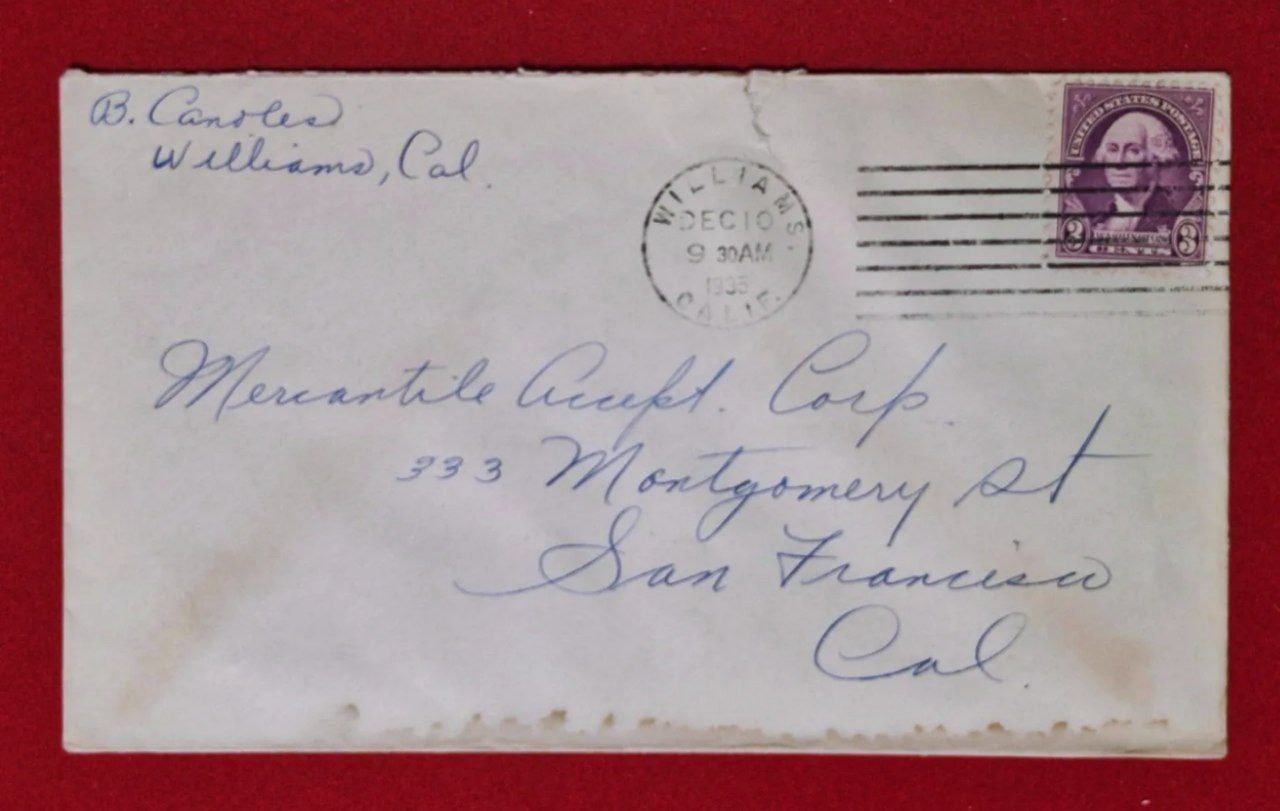 B. Canoles
Williams, Cal.
WILLIAMS.
DEC 10
9 30AM
1935
CALIF.
UNITED STATES POSTAGE
3 3
Mercantile Accept. Corp.
333 Montgomery St
San Francisco
Cal.